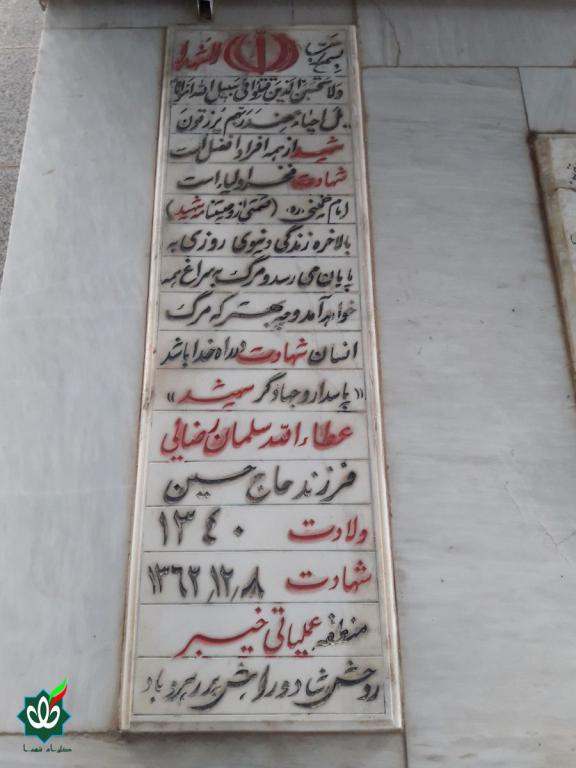 بسم رب الشهدا
ولا تحسبن الذین قتلوا فی سبیل الله امواتا
بل احیاء عند ربهم یرزقون
شهید از همه افراد افضل است
شهادت فخر اولیاء است
امام خمینی (ره) (قسمتی از وصیتنامه شهید)
بالاخره زندگی دنیوی روزی به
پایان می رسد و مرگ به سراغ همه
خواهد آمد و چه بهتر که مرگ
انسان شهادت در راه خدا باشد
«پاسدار و جهادگر شهید»
عطاء الله سلمان رضایی
فرزند حاج حسین
ولادت ۱۳۴۰
شهادت ۱۳۶۲٫۱۲٫۸
منطقه عملیاتی خیبر
روحش شاد و راهش پر رهرو باد